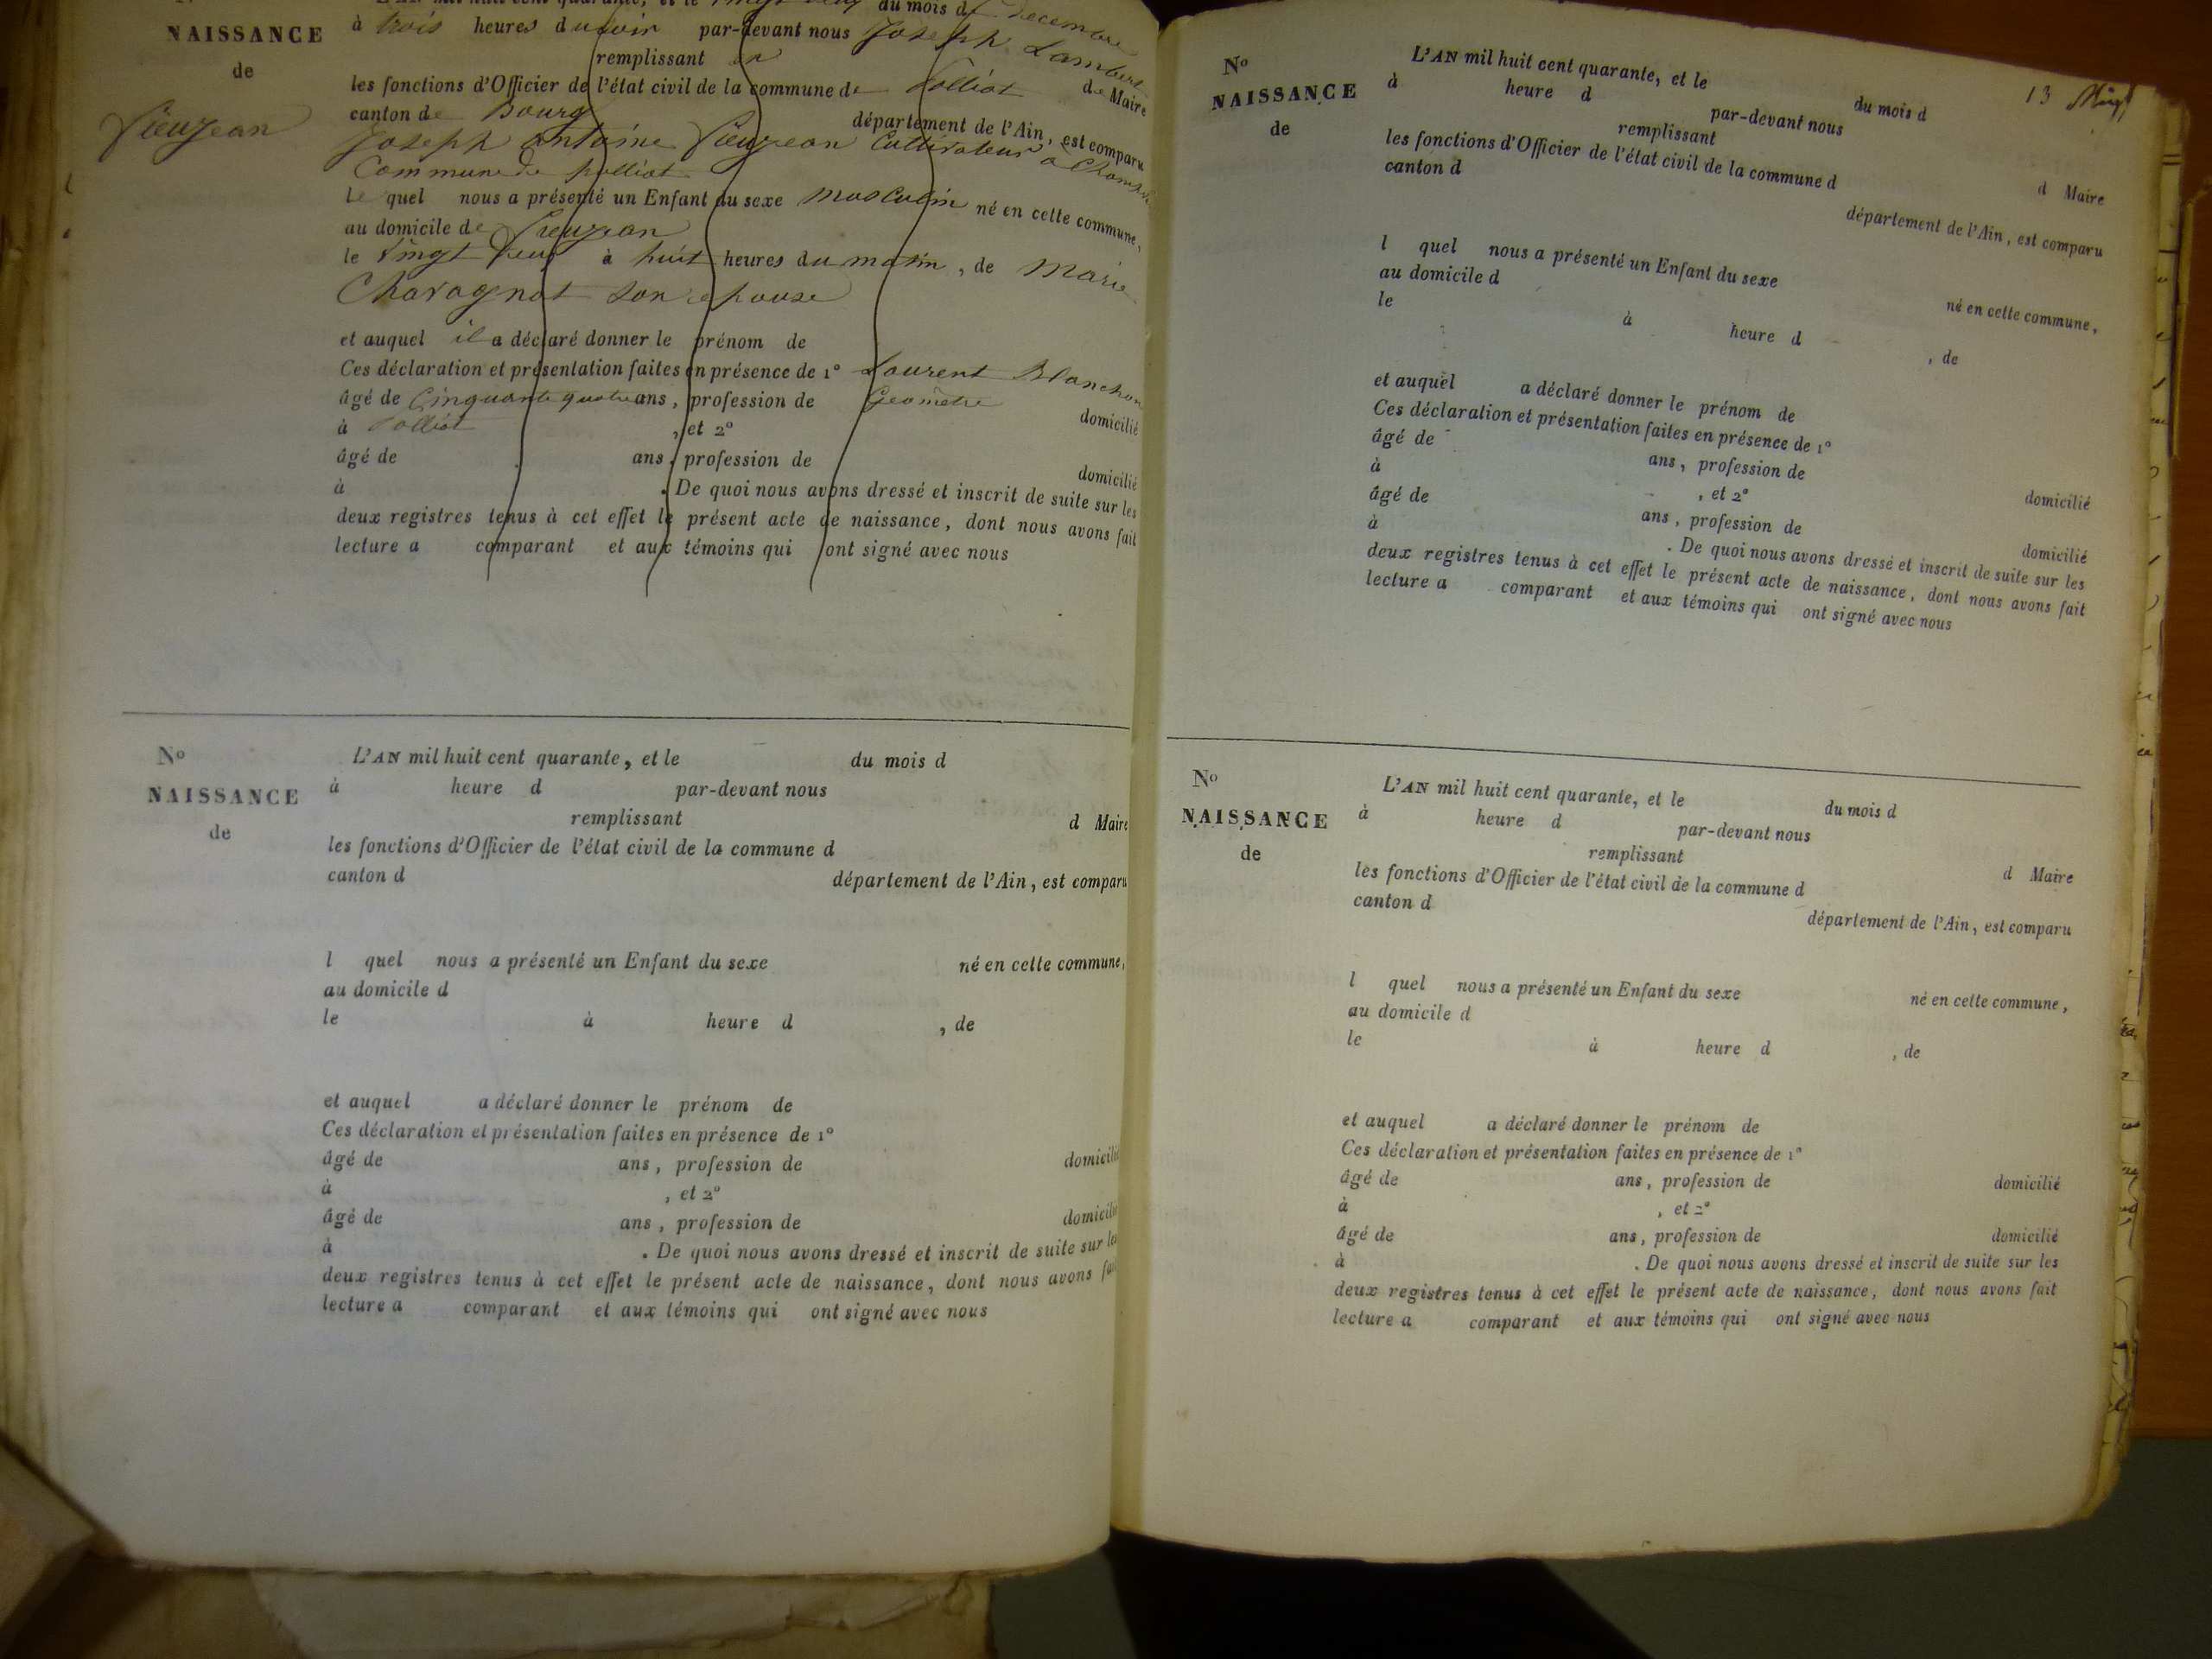 L'AN mil huit cent quarante, et le vingt deux du mois de decembre
NAISSANCE
de
Vieujean
à trois heures du soir par-devant nous Joseph Lambert
remplissant
les fonctions d'Officier de l'état civil de la commune de Polliat de Maire
canton de Bourg département de l'Ain, est comparu
Joseph antoine Vieujean Cultivateur a
Commune de polliat
Le quel nous a présenté un Enfant du sexe masculin né en cette commune,
au domicile de Vieujean
le Vingt deux à huit heures du matin, de Marie
Charagnat son epouse
et auquel il a déclaré donner le prénom de
Ces déclaration et présentation faites en présence de 1º Laurent Blanchon
âgé de Cinquante quatre ans, profession de Géometre domicilié
à Polliat, et 2º
âgé de ans, profession de domicilié
à . De quoi nous avons dressé et inscrit de suite sur les
deux registres tenus à cet effet le présent acte de naissance, dont nous avons fait
lecture a comparant et aux témoins qui ont signé avec nous
Nº
NAISSANCE
de
L'AN mil huit cent quarante, et le du mois d
à heure d par-devant nous
remplissant d Maire
les fonctions d'Officier de l'état civil de la commune d
canton d département de l'Ain, est comparu
l quel nous a présenté un Enfant du sexe né en cette commune,
au domicile d
le à heure d , de
et auquel a déclaré donner le prénom de
Ces déclaration et présentation faites en présence de 1º
âgé de ans, profession de domicilié
à , et 2º
âgé de ans, profession de domicilié
à . De quoi nous avons dressé et inscrit de suite sur les
deux registres tenus à cet effet le présent acte de naissance, dont nous avons fait
lecture a comparant et aux témoins qui ont signé avec nous
13
Nº
NAISSANCE
de
L'AN mil huit cent quarante, et le du mois d
à heure d par-devant nous
remplissant d Maire
les fonctions d'Officier de l'état civil de la commune d
canton d département de l'Ain, est comparu
l quel nous a présenté un Enfant du sexe né en cette commune,
au domicile d
le à heure d , de
et auquel a déclaré donner le prénom de
Ces déclaration et présentation faites en présence de 1º
âgé de ans, profession de domicilié
à , et 2º
âgé de ans, profession de domicilié
à . De quoi nous avons dressé et inscrit de suite sur les
deux registres tenus à cet effet le présent acte de naissance, dont nous avons fait
lecture a comparant et aux témoins qui ont signé avec nous
Nº
NAISSANCE
de
L'AN mil huit cent quarante, et le du mois d
à heure d par-devant nous
remplissant d Maire
les fonctions d'Officier de l'état civil de la commune d
canton d département de l'Ain, est comparu
l quel nous a présenté un Enfant du sexe né en cette commune,
au domicile d
le à heure d , de
et auquel a déclaré donner le prénom de
Ces déclaration et présentation faites en présence de 1º
âgé de ans, profession de domicilié
à , et 2º
âgé de ans, profession de domicilié
à . De quoi nous avons dressé et inscrit de suite sur les
deux registres tenus à cet effet le présent acte de naissance, dont nous avons fait
lecture a comparant et aux témoins qui ont signé avec nous